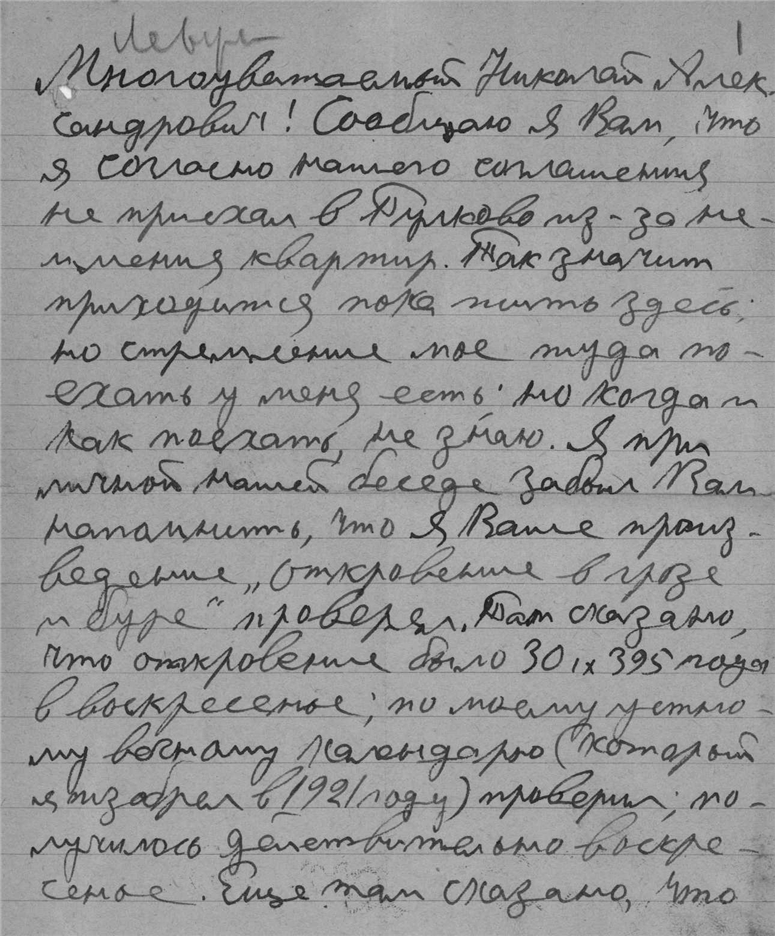 1
Многоуважаемый Николай Алек-
сандрович! Сообщаю я Вам, что
я согласно нашего соглашения
не приехал в Пулково из-за не-
имения квартир. Так значит
приходится пока жить здесь;
но стремление мое туда по-
ехать у меня есть; но когда и
как поехать, не знаю. Я при
личной нашей беседе забыл Вам
напомнить, что я Ваше произ-
ведение „Откровение в грозе
и буре" проверял. Там сказано,
что откровение было 30 IX 395 года
в воскресенье; по моему устно-
му вечному календарю (который
я изобрел в 1921 году) проверил; по-
лучилось действительно воскре-
сенье. Еще там сказано, что